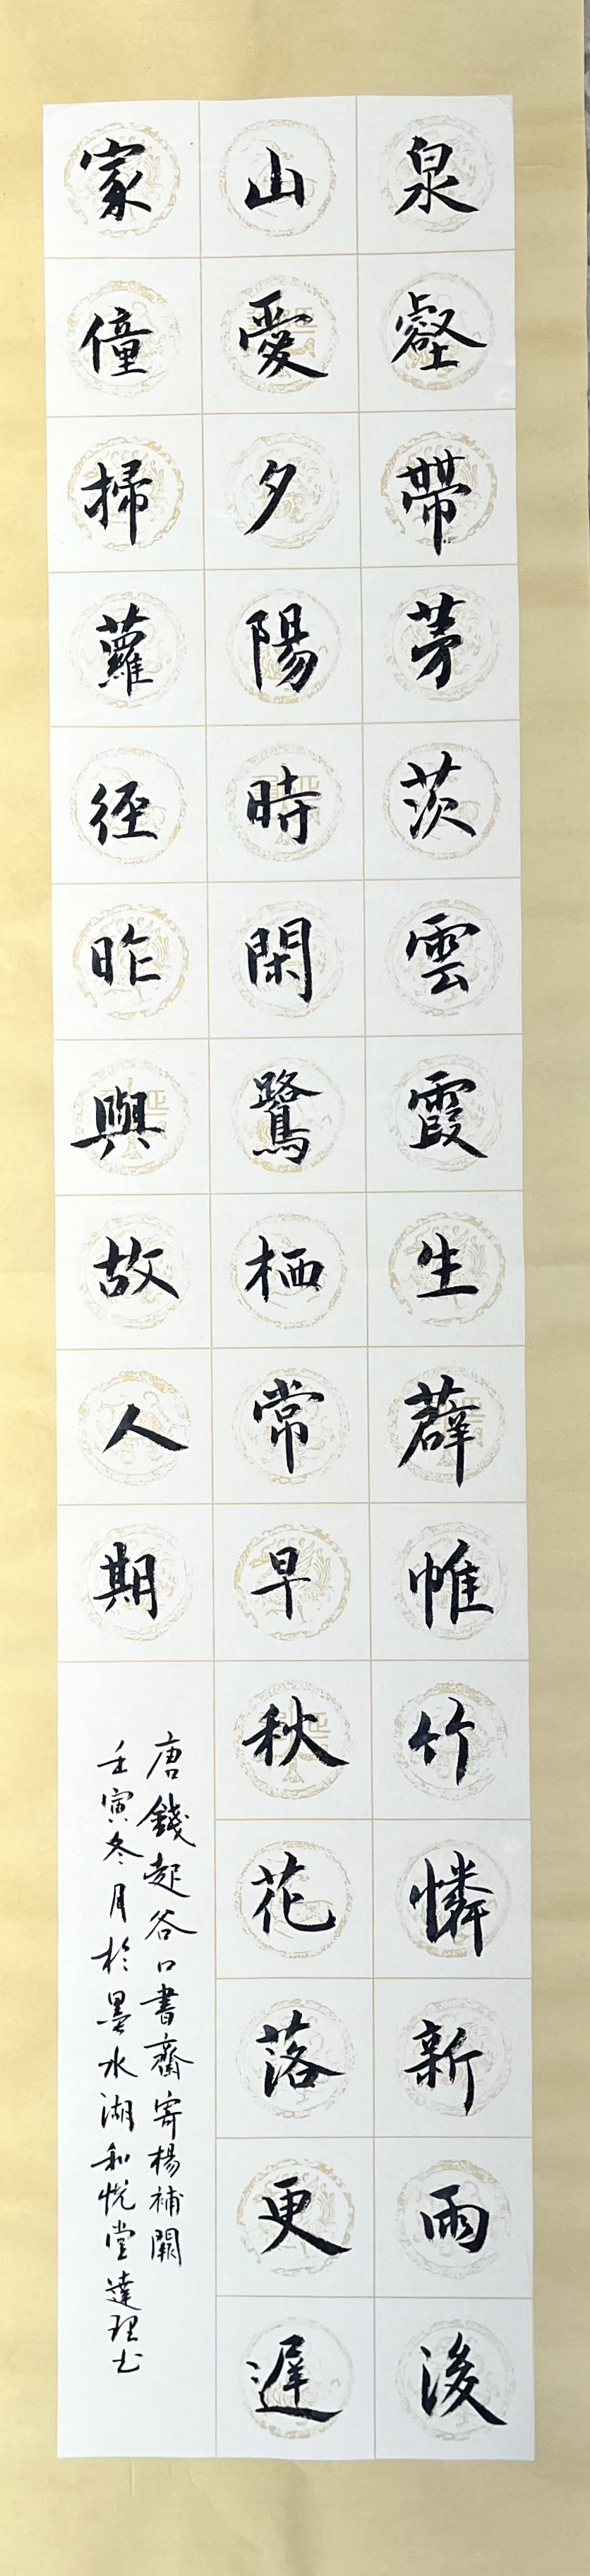 泉壑帶茅茨雲霞生薜帷竹憐新雨後
山愛夕陽時閑鷺栖常早秋花落更遲
家僮掃蘿徑昨與故人期
唐錢起谷口書齋寄楊補闕
壬寅冬月於墨水湖和悅堂達理书